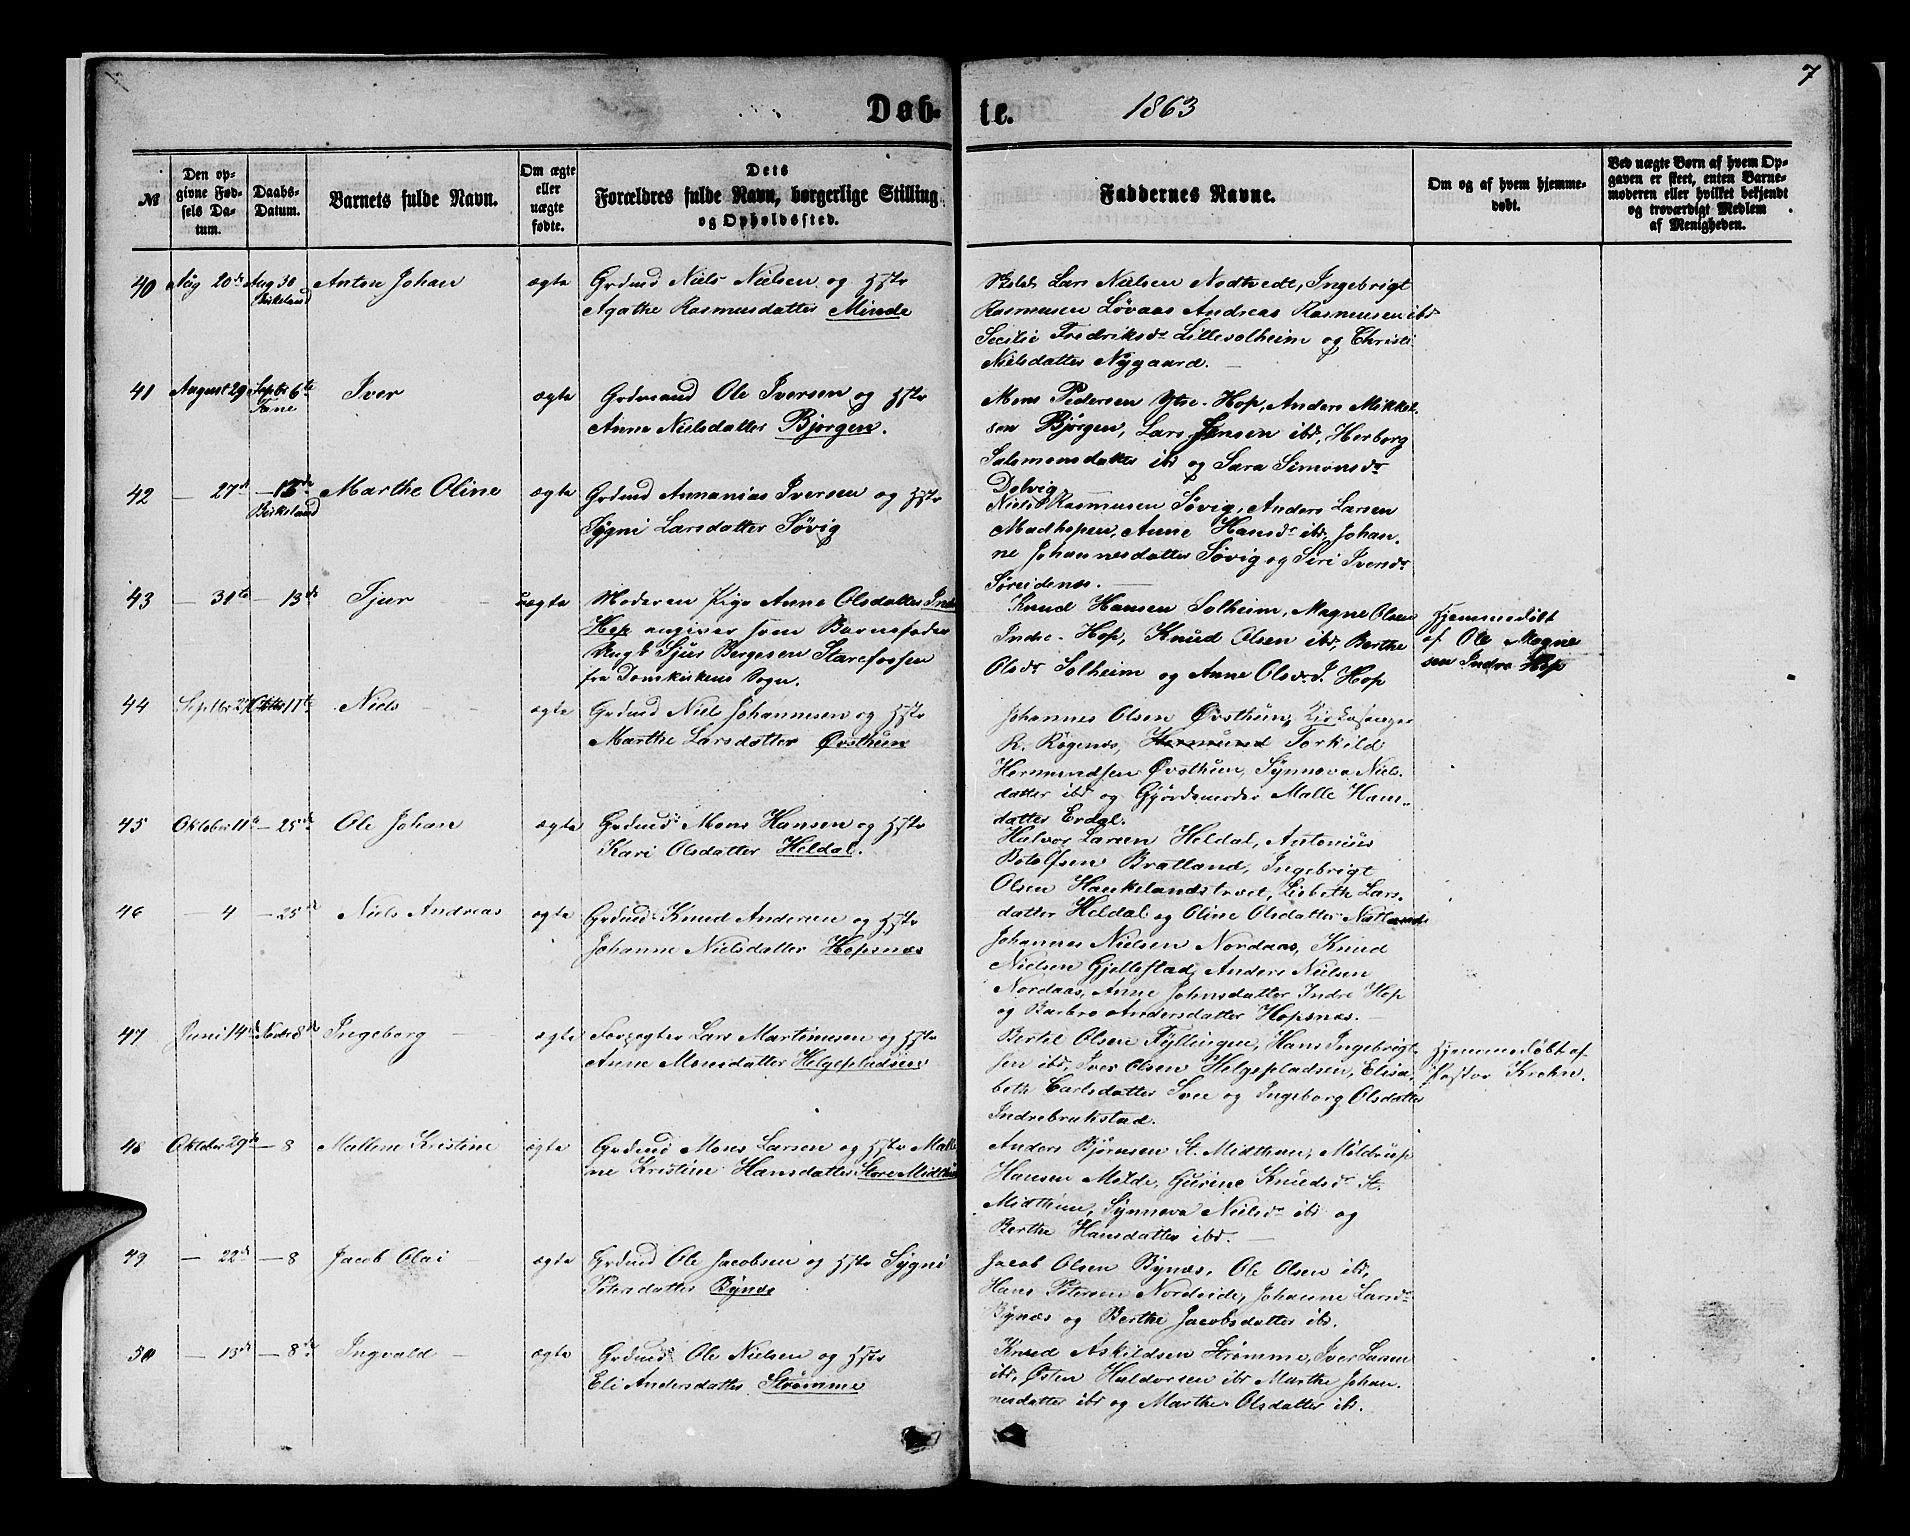 7
Døb-
te.
1863
№
Den op-
givne Fød-
sels Da-
tum.
Daabs-
Datum.
Barnets fulde Navn.
Om ægte
eller
uægte
fødte.
Dets
Forældres fulde Navn, borgerlige Stilling
og Opholdssted.
Faddernes Navne.
Om og af hvem hjemme-
døbt.
Ved uægte Børn af hvem Op-
gaven er skeet, enten Barne-
moderen eller hvilket bekjendt
og troværdigt Medlem
af Menigheden.
40 Aug 20de Aug 30 Anton Johan ægte Grdmd Niels Nielsen og Hstr
Birkeland
Agathe Rasmusdatter Minde
Lars Nielsen Nodtvedt, Ingebrigt
Rasmusen Løvaas Andreas Rasmusen ibd
Secilie Fredriksdr Lillesolheim og Christi
Nielsdatter Nygaard.
41 August 29 Septbr 6te Iver ægte Grdmand Ole Iversen og Hstr
Fane
Anne Nielsdatter Bjørgen.
Mons Pedersen Ytre-Hop, Anders Mikkel-
sen Bjørgen, Lars Jensen ibd, Herborg
Salomonsdatter ibd og Sara Simonsdr
Dolvig.
42 — 27de — 13de Marthe Oline ægte Grdmd Annanias Iversen og Hstr
Birkeland
Sygni Larsdatter Søvig
Niels Rasmusen Søvig, Anders Larsen
Madhopen, Anne Hansdr ibd, Johan-
ne Johannesdatter Søvig og Siri Iversdr
Søreidenes.
43 — 31te — 13de Sjur uægte Moderen Pige Anne Olsdatter Indre
Hop angiver som Barnefader
Ungk Sjur Børgesen Starefossen
fra Domkirkens Sogn.
Knud Hansen Solheim, Magne Olsen
Indre-Hop, Knud Olsen ibd, Berthe
Olsdr Solheim og Anne Olsdr I. Hop
Hjemmedøbt
af Ole Magne
sen Indre Hop
44 Septbr Oktbr 11te Niels ægte Grdmd Niel Johannesen og Hstr
Marthe Larsdatter Øvsthun
Johannes Olsen Øvsthun, Kirkesanger
R. Røgenes, Hermund Torkild
Hermundsen Øvsthun, Synneva Niels-
datter ibd og Gjordemoder Malle Hans-
datter Erdal.
45 Oktober 11te — 25de Ole Johan ægte Grdmd Mons Hansen og Hstr
Kari Olsdatter Heldal.
Halvor Larsen Heldal, Antonius
Botolfsen Bratland, Ingebrigt
Olsen Haukelandstræet, Lisbeth Lars-
datter Heldal og Oline Olsdatter Natland.
46 — 4 — 25de Niels Andreas ægte Grdmd Knud Andersen og Hstr
Johanne Nielsdatter Hopsnæs
Johannes Nielsen Nordaas, Knud
Nielsen Gjellestad, Anders Nielsen
Nordaas, Anne Johnsdatter Indre Hop
og Barbro Andersdatter Hopsnæs.
47 Juni 14de Novbr 8de Ingeborg ægte Lars Martinusen og Hstr
Anne Monsdatter Helgepladsen
Bertel Olsen Fyllingen, Hans Ingebrigt-
sen ibd, Iver Olsen Helgepladsen, Elisa-
beth Carlsdatter Svee og Ingeborg Olsdatter
Indrebrukstad.
Hjemmedøbt af
Pastor Krohn.
48 Oktober 29de — 8 Mallene Kristine ægte Grdmd Mons Larsen og Hstr Malle
ne Kristine Hansdatter Store Midthun
Anders Bjørnsen St. Midthun, Møldrup
Hansen Melde, Gurine Knudsdr St.
Midthun, Synneva Nielsdr ibd og
Berthe Hansdatter ibd.
49 — 22de — 8 Jacob Olai ægte Grdmd Ole Jacobsen og Hstr Sygni
Petersdatter Bynæs
Jacob Olsen Bynæs, Ole Olsen ibd,
Hans Petersen Nordvide, Johanne Larsdr
Bynæs og Berthe Jacobsdatter ibd.
50 — 13de — 8de Ingvald ægte Grdmd Ole Nielsen og Hstr
Eli Andersdatter Strømme
Knud Askildsen Strømme, Iver Larsen
ibd, Østen Haldorsen ibd Marthe Johan-
nesdatter ibd og Marthe Olsdatter ibd.